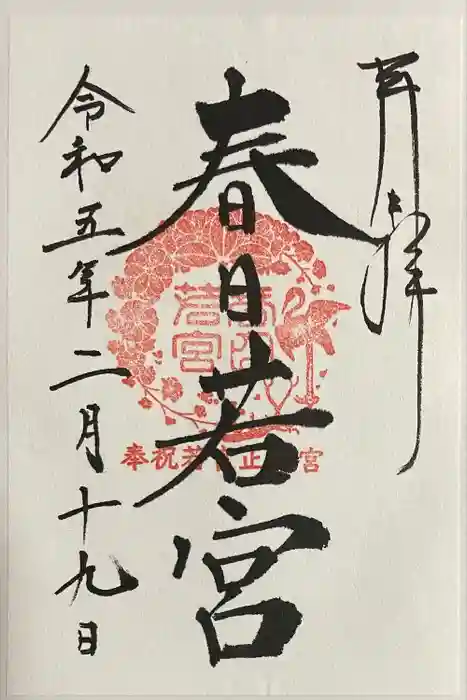 奉拝
春日若宮
春日
若宮
奉祝若宮正遷宮
令和五年二月十九日